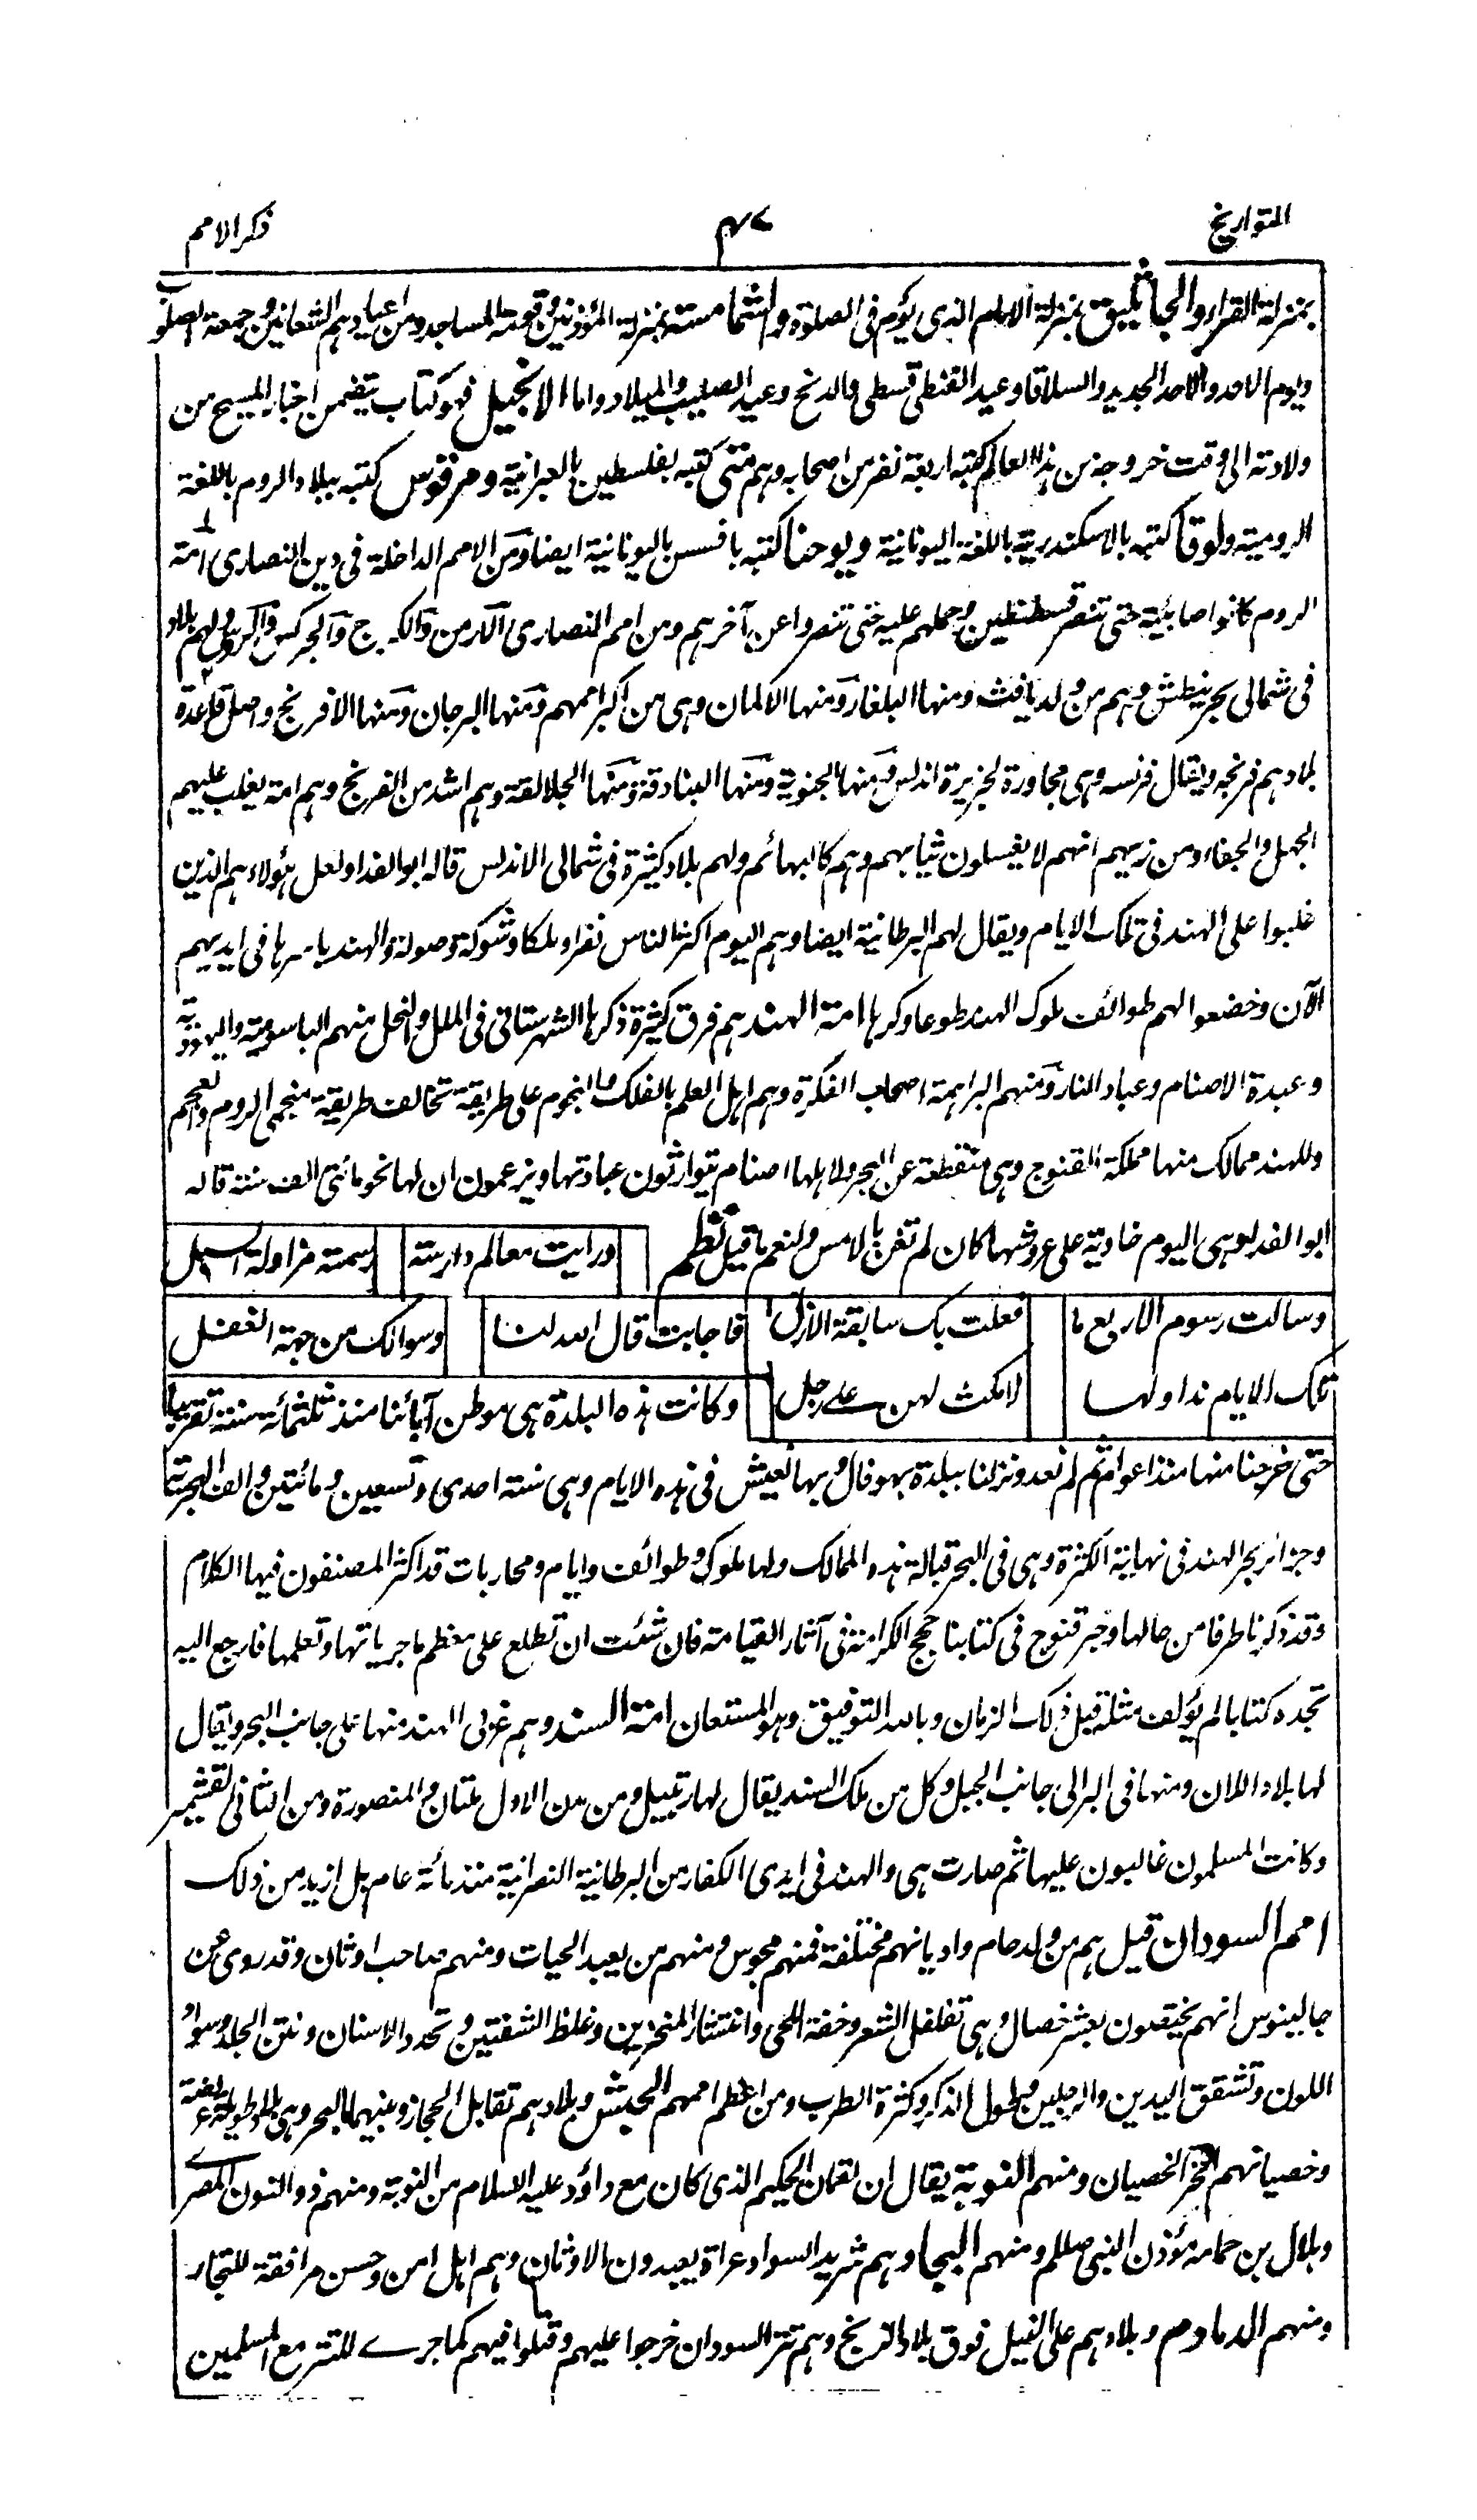 التواريخ ٤٧ ذكر الامم
بمنزلة القراء والجاثليق بمنزلة الامام الذى يؤم فى الصلوة والشمامسة بمنزلة المؤذنين وقومة المساجد ومن اعيادهم الشعانين وجمعة الصلبوت
ويوم الاحد والاحد الجديد والسلاقا وعيد القنطى قسطى والدنح وعيد الصليب والميلاد واما الانجيل فهو كتاب يتضمن اخبار المسيح من
ولادته الى وقت خروجه من هذا العالم كتبه اربعة نفر من اصحابه وهم متى كتبه بفلسطين بالعبرانية ومرقوس كتبه ببلاد الروم باللغة
الرومية ولوقا كتبه بالاسكندرية باللغة اليونانية ويوحنا كتبه بافسس باليونانية ايضا ومن الامم الداخلة فى دين النصارى امة
الروم كانوا صابئية حتى تنصر قسطنطين وحملهم عليه حتى تنصروا عن آخرهم ومن امم النصارى الارمن والكرج والجركس والروس ولهم بلاد
فى شمالى بحر نيطش وهم من ولد يافث ومنها البلغار ومنها الالمان وهى من اكبر اممهم ومنها البرجان ومنها الافرنج واصل قاعدة
بلادهم فرنجه ويقال فرنسه وهى مجاورة لجزيرة اندلس ومنها الجنوية ومنها البنادقة ومنها الجلالقة وهم اشد من الفرنج وهم امة يغلب عليهم
الجهل والجفاء ومن زيهم انهم لا يغسلون ثيابهم وهم كالبهائم ولهم بلاد كثيرة فى شمالى الاندلس قاله ابو الفدا ولعل هؤلاء هم الذين
غلبوا على الهند فى تلك الايام ويقال لهم البرطانية ايضا وهم اليوم اكثر الناس نفرا وملكا وشوكة وصولة والهند باسرها فى ايديهم
الآن وخضعوا لهم طوائف ملوك الهند طوعا وكرها امة الهند هم فرق كثيرة ذكرها الشهرستانى فى الملل والنحل منهم الباسوية واليهودية
وعبدة الاصنام وعباد النار ومنهم البراهمة اصحاب الفكرة وهم اهل العلم بالفلك والنجوم على طريقة تخالف طريقة منجمى الروم والعجم
وللهند ممالك منها مملكة القنوج وهى منقطعة عن البحر ولاهلها اصنام يتوارثون عبادتها ويزعمون ان لها نحو مائتى الف سنة قاله
ابو الفدا وهى اليوم خاوية على عروشها كان لم تغن بالامس ولنعم ما قيل نظم ورايت معالم دارسة رسمته مزاولة السبل
وسالت رسوم الاربع ما فعلت بك سابقة الازل فاجابت قال الله لنا وسوالك من جهة الغفل
تلك الايام نداولها لا مكث لهن على رجل وكانت هذه البلدة هى موطن آبائنا منذ ثلثمائة سنة تقريبا
حتى خرجنا منها منذ اعوام ثم لم نعد ونزلنا ببلدة بهوفال وبها نعيش فى هذه الايام وهى سنة احدى وتسعين ومائتين والف الهجرية
وجزائر بحر الهند فى نهاية الكثرة وهى فى البحر قبالة هذه الممالك ولها ملوك وطوائف وايام ومحاربات قد اكثر المصنفون فيها الكلام
وقد ذكرنا طرفا من حالها وخبر قنوج فى كتابنا حجج الكرامة فى آثار القيامة فان شئت ان تطلع على معظم ماجرياتها وتعلمها فارجع اليه
تجده كتابا لم يؤلف مثله قبل ذلك الزمان وبالله التوفيق وهو المستعان امة السند وهم غربى الهند ومنها على جانب البحر ويقال
لها بلاد اللان ومنها فى البر الى جانب الجبل وكل من ملك السند يقال لها رتبيل ومن مدن الاول ملتان والمنصورة ومن الثانى تقشمير
وكانت المسلمون غالبون عليها ثم صارت هى والهند فى ايدى الكفار من البرطانية النصرانية منذ مائة عام بل ازيد من ذلك
امم السودان قيل هم من ولد حام واديانهم مختلفة فمنهم مجوس ومنهم من يعبد الحيات ومنهم صاحب اوثان وقد روى عن
جالينوس انهم يختصون بعشر خصال وهى تفلفل الشعر وخفة اللحى وانتشار المنخرين وغلظ الشفتين وتحدد الاسنان ونتن الجلد وسواد
اللون وتشقق اليدين والرجلين وطول الذكر وكثرة الطرب ومن اعظم اممهم الحبش وبلادهم تقابل الحجاز وبينهما البحر وهى بلاد طويلة عريضة
وخصيانهم افخر الخصيان ومنهم النوبة يقال ان لقمان الحكيم الذى كان مع داؤد عليه السلام من النوبة ومنهم ذو النون المصرى
وبلال بن حمامه مؤذن النبى صللم ومنهم البجا وهم شديد السواد عراة يعبدون الاوثان وهم اهل امن وحسن مرافقة للتجار
ومنهم الدمادم وبلادهم على النيل فوق بلاد الزنج وهم تتر السودان خرجوا عليهم وقتلوا فيهم كما جرى للتتر مع المسلمين